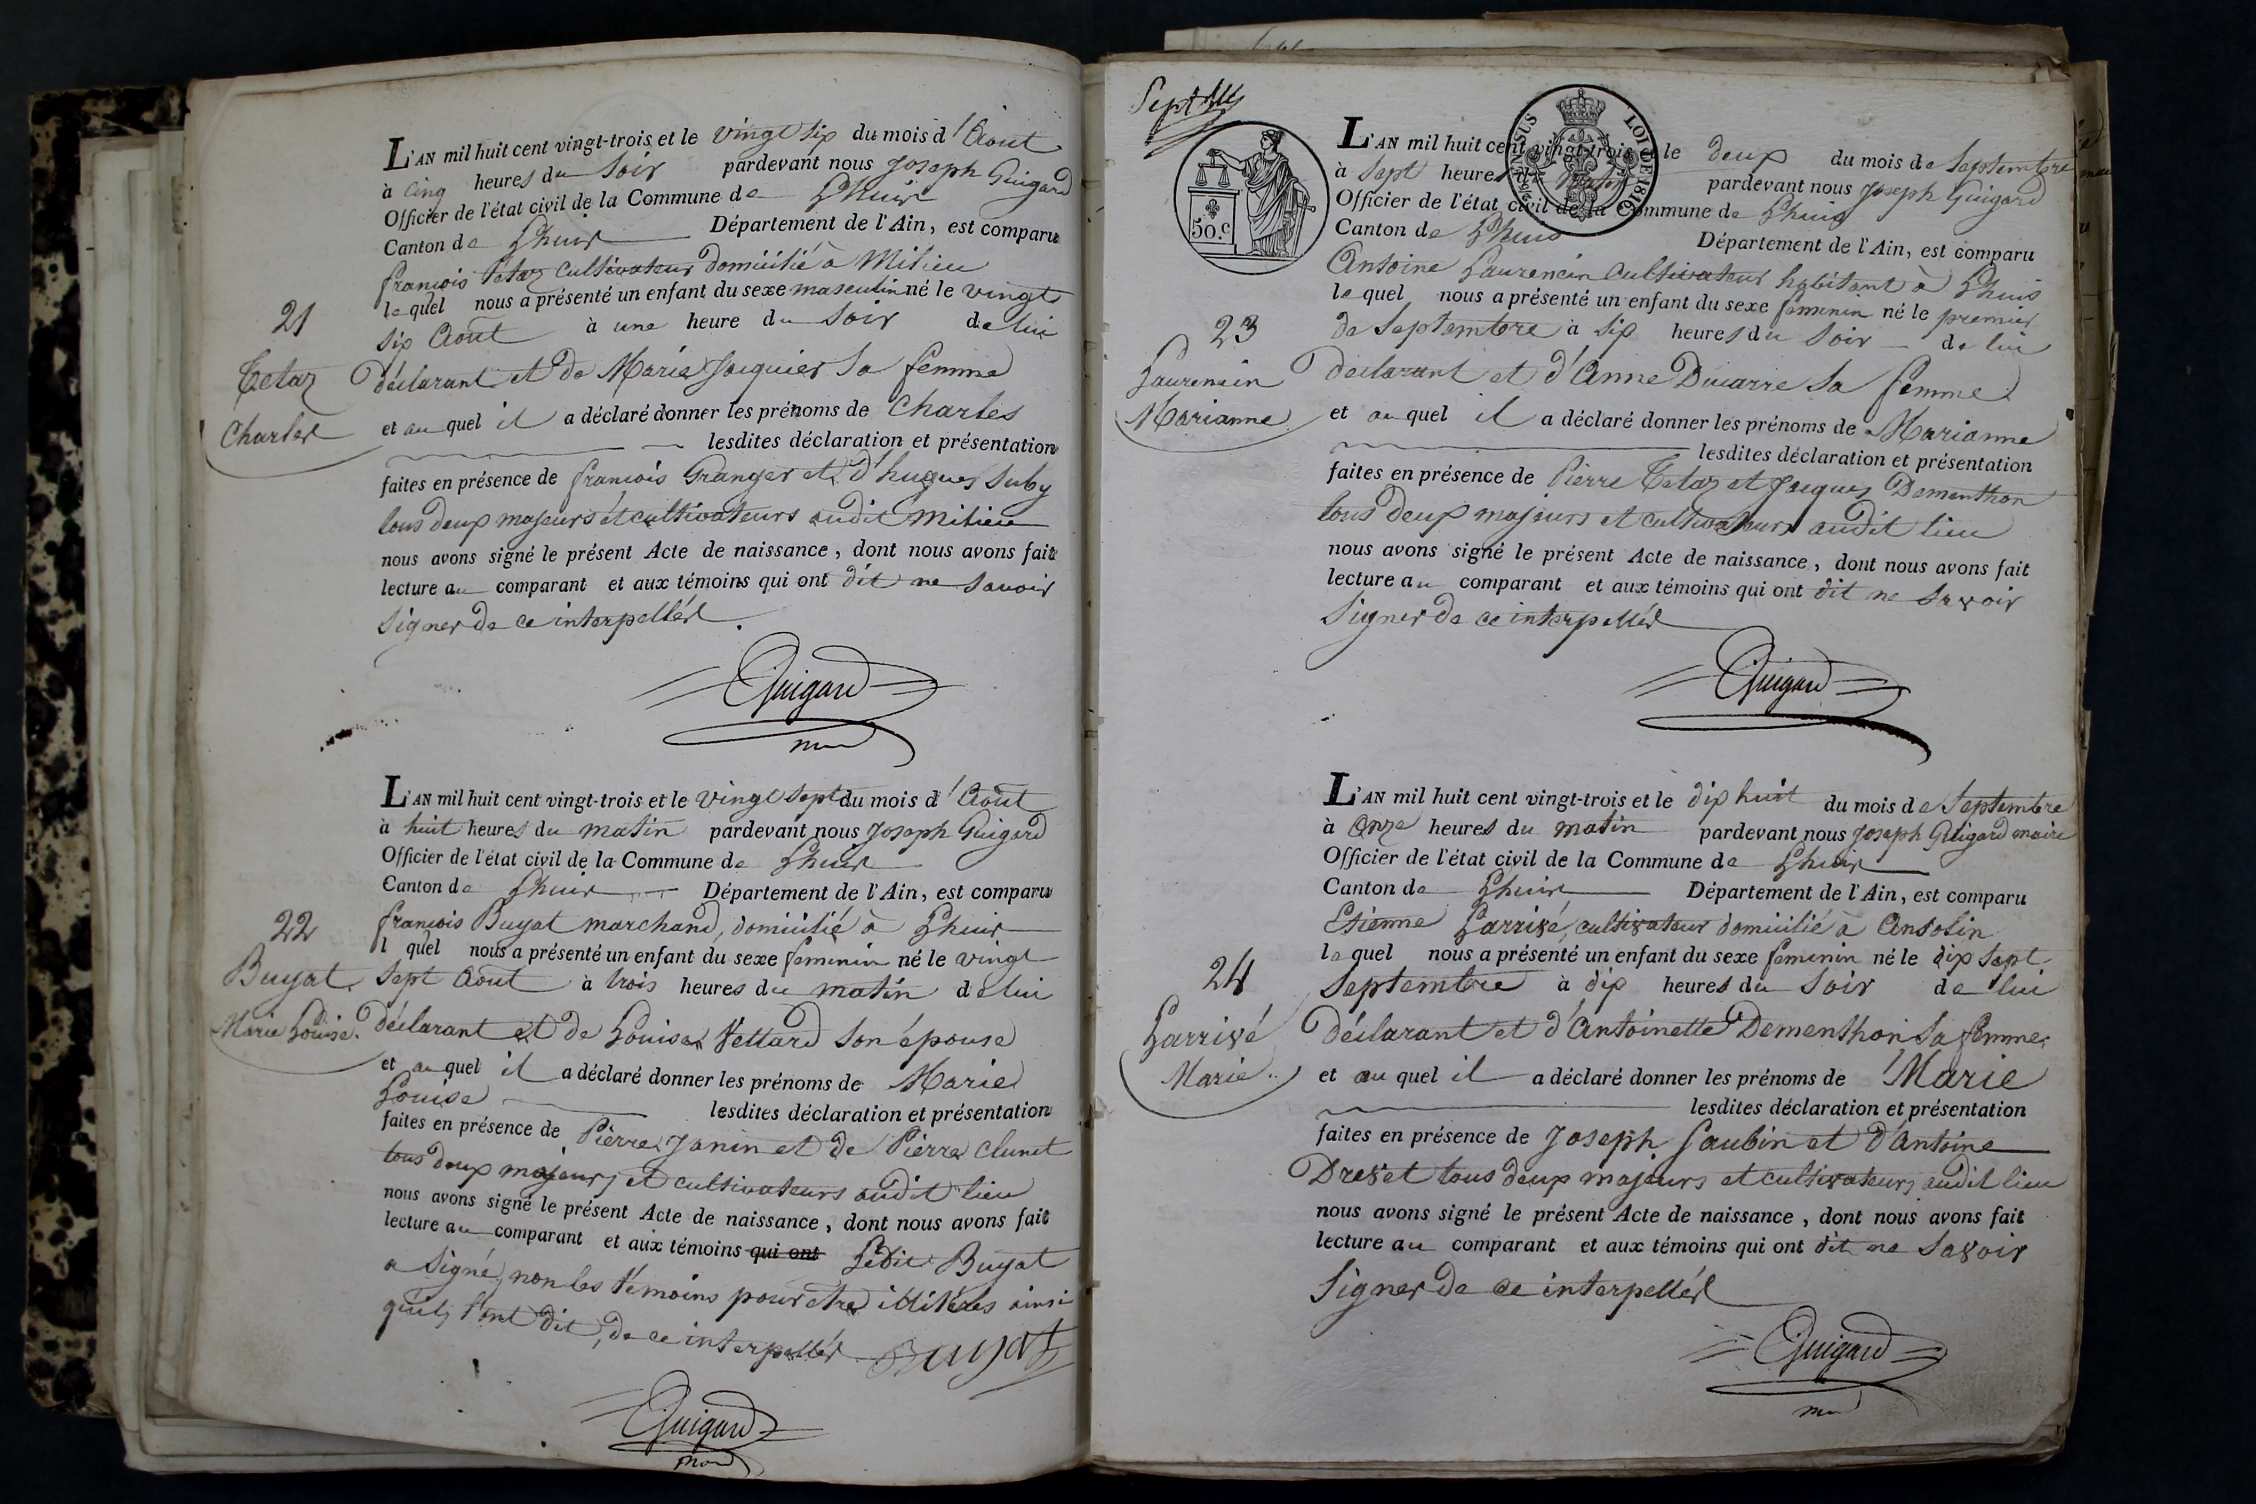 21
Tetaz
Charles
L'AN mil huit cent vingt-trois et le vingt six du mois d'Aout
à cinq heures du Soir pardevant nous Joseph Guigard
Officier de l'état civil de la Commune de Lhuis
Canton de Lhuis Département de l'Ain, est comparu
françois Tetaz cultivateur domicilié à Milieu
lequel nous a présenté un enfant du sexe masculin né le vingt
six Août à une heure du Soir de lui
déclarant et de Marie Jacquier sa femme
et au quel il a déclaré donner les prénoms de Charles
lesdites déclaration et présentation
faites en présence de françois Granger et d'hugues Suby
tous deux majeurs et cultivateurs audit Milieu
nous avons signé le présent Acte de naissance, dont nous avons fait
lecture au comparant et aux témoins qui ont dit ne savoir
signer de ce interpellés.
Guigard
22
Buyat
Marie Louise.
L'AN mil huit cent vingt-trois et le vingt sept du mois d'Août
à huit heures du matin pardevant nous Joseph Guigard
Officier de l'état civil de la Commune de Lhuis
Canton de Lhuis Département de l'Ain, est comparu
françois Buyat marchand, domicilié à Lhuis
l quel nous a présenté un enfant du sexe feminin né le vingt
sept Août à trois heures du matin de lui
déclarant et de Louise Vettard son épouse
et au quel il a déclaré donner les prénoms de Marie
Louise lesdites déclaration et présentation
faites en présence de Pierre Janin et de Pierre Clunet
tous deux majeurs et cultivateurs audit lieu
nous avons signé le présent Acte de naissance, dont nous avons fait
lecture au comparant et aux témoins qui ont Ledit Buyat
a signé, non les témoins pour être illitérés ainsi
qu'ils l'ont dit, de ce interpellés Buyat
Guigard
Septbre
50.c
LOI DE 1816
23
Laurencin
Marianne
L'AN mil huit cent vingt-trois et le deux du mois de Septembre
à sept heures du matin pardevant nous Joseph Guigard
Officier de l'état civil de la Commune de Lhuis
Canton de Lhuis Département de l'Ain, est comparu
Antoine Laurencin cultivateur habitant à Lhuis
lequel nous a présenté un enfant du sexe feminin né le premier
de Septembre à six heures du Soir de lui
déclarant et d'Anne Ducarre sa femme
et au quel il a déclaré donner les prénoms de Marianne
lesdites déclaration et présentation
faites en présence de Pierre Tetaz et Jacques Dementhon
tous deux majeurs et cultivateurs audit lieu
nous avons signé le présent Acte de naissance, dont nous avons fait
lecture au comparant et aux témoins qui ont dit ne savoir
signer de ce interpellés
Guigard
24
Larrivé
Marie
L'AN mil huit cent vingt-trois et le dix huit du mois de Septembre
à onze heures du matin pardevant nous Joseph Guigard maire
Officier de l'état civil de la Commune de Lhuis
Canton de Lhuis Département de l'Ain, est comparu
Etienne Larrivé, cultivateur domicilié à Ansolin
lequel nous a présenté un enfant du sexe feminin né le dix sept
Septembre à dix heures du Soir de lui
déclarant et d'Antoinette Dementhon sa femme
et au quel il a déclaré donner les prénoms de Marie
lesdites déclaration et présentation
faites en présence de Joseph Saubin et d'Antoine
Drevet tous deux majeurs et cultivateurs audit lieu
nous avons signé le présent Acte de naissance, dont nous avons fait
lecture au comparant et aux témoins qui ont dit ne savoir
signer de ce interpellés
Guigard